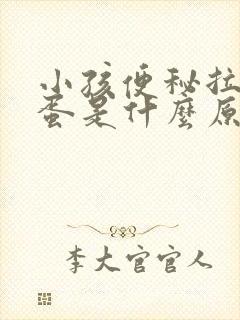 小孩便秘拉
蛋是什麼原
李大官官人